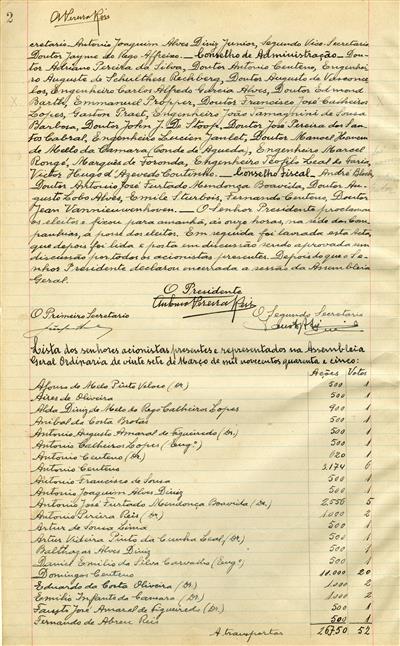 2
A Pereira Reis
cretario Antonio Joaquim Alves Diniz Junior, Segundo Vice-Secretario
Doutor Jayme do Rego Affreixo. — Conselho de Administração — Dou-
tor Adriano Pereira da Silva, Doutor Antonio Centeno, Engenhei-
ro Auguste de Schulthess Rechberg, Doutor Augusto de Vasconce-
los, Engenheiro Carlos Alfredo Garcia Alves, Doutor Edmond
Barth, Emmanuel Propper, Doutor Francisco José Calheiros
Lopes, Gaston Prael, Engenheiro João Tamagnini de Sousa
Barbosa, Doutor John J. De Stoop, Doutor José Pereira dos San-
tos Cabral, Engenheiro Lucien Janlet, Doutor Manoel Homem
de Mello da Camara (Conde de Agueda), Engenheiro Marcel
Rongé, Marquês de Foronda, Engenheiro Teófilo Leal de Faria,
Victor Hugo d'Azevedo Coutinho. — Conselho Fiscal — André Bloch,
Doutor Antonio José Furtado Mendonça Boavida, Doutor Au-
gusto Lobo Alves, Emile Stuibois, Fernando Centeno, Doutor
Jean Vannieuwenhoven. — O Senhor Presidente proclamou
os eleitos e ficou para amanhã, às onze horas, na séde da Com-
panhia, a posse dos eleitos. Em seguida foi lavrada esta acta,
que depois foi lida e posta em discussão sendo aprovada sem
discussão por todos os acionistas presentes. Depois do que o Se-
nhor Presidente declarou encerrada a sessão da Assembleia
Geral.
O Presidente
Antonio Pereira Reis
O Primeiro Secretario
O Segundo Secretario
Lista dos senhores acionistas presentes e representados na Assembleia
Geral Ordinaria de vinte sete de Março de mil novecentos quarenta e cinco:
Acções Votos
Afonso de Melo Pinto Veloso (Dr) 500 1
Aires de Oliveira 500 1
Aldo Diniz de Melo do Rego Calheiros Lopes 900 1
Anibal da Costa Brotas 500 1
Antonio Augusto Amaral de Figueiredo (Dr) 500 1
Antonio Calheiros Lopes (Engº) 500 1
Antonio Centeno (Dr) 620 1
Antonio Centeno 3.174 6
Antonio Francisco de Sousa 500 1
Antonio Joaquim Alves Diniz 500 1
Antonio José Furtado Mendonça Boavida (Dr) 2.556 5
Antonio Pereira Reis (Dr) 1.000 2
Artur de Sousa Lima 500 1
Artur Videira Pinto da Cunha Leal (Dr) 500 1
Balthazar Alves Diniz 500 1
Daniel Emilio da Silva Carvalho (Engº) 500 1
Domingos Centeno 10.000 20
Eduardo da Costa Oliveira (Dr) 1.000 2
Emilio Infante da Camara (Dr) 1.000 2
Fausto José Amaral de Figueiredo (Dr) 500 1
Fernando de Abreu Reis 500 1
A transportar 26750 52